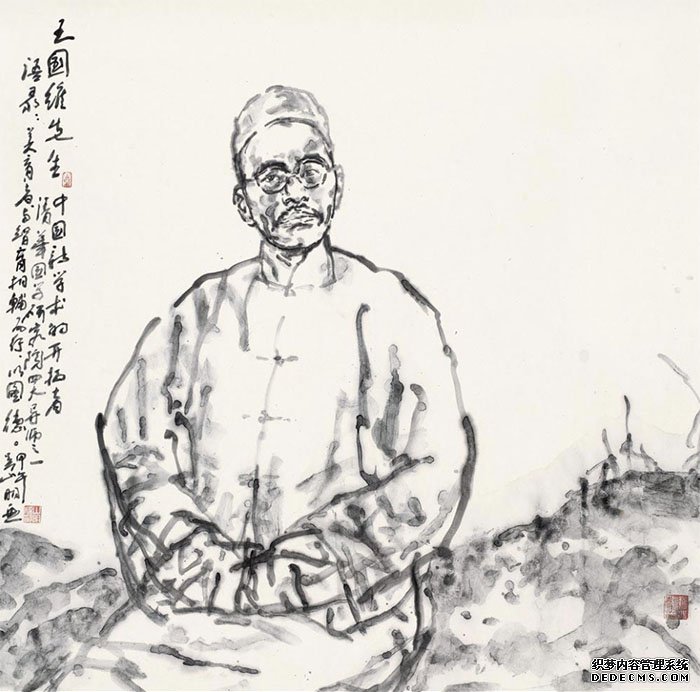 王國維先生
中国新学术的开拓者
清華国学研究院四大导师之一
語录：美育者与智育相辅而行以图德。甲午
织梦内容管理系统
DEDECMS.COM